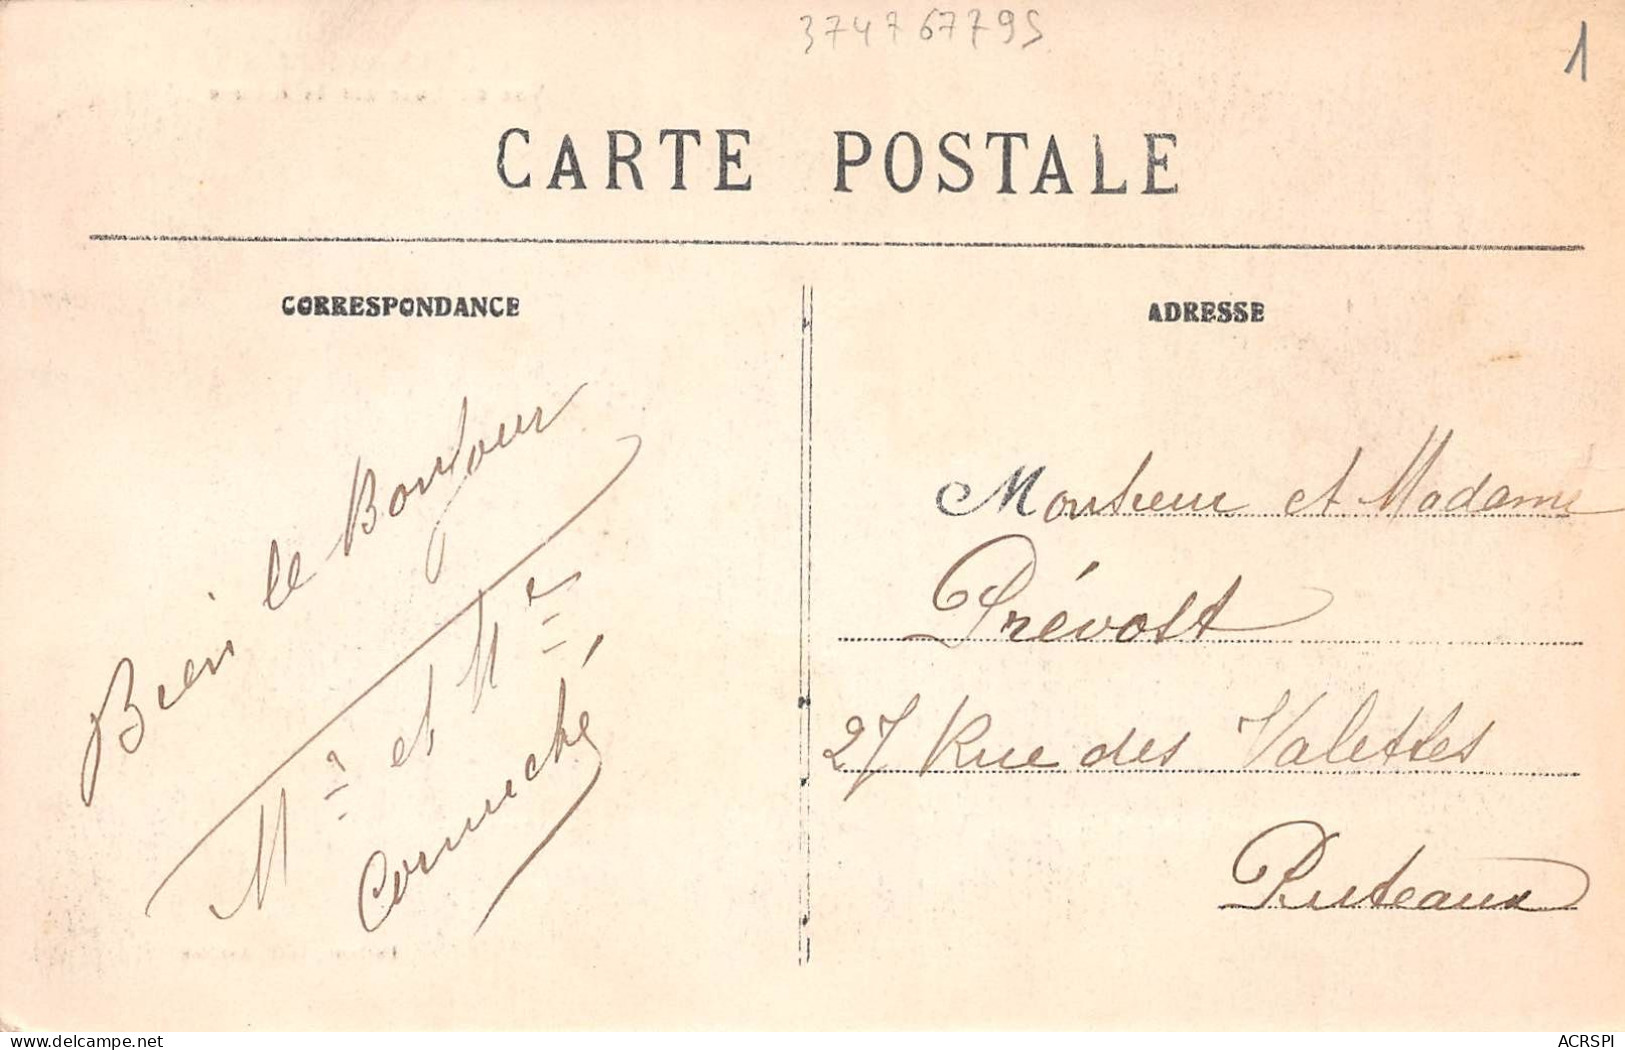 374767795
1
CARTE POSTALE
CORRESPONDANCE
ADRESSE
Bien le Bonjour
Mr et Me
Monsieur et Madame
Prévost
27 Rue des Valettes
Puteaux
ACRSPI